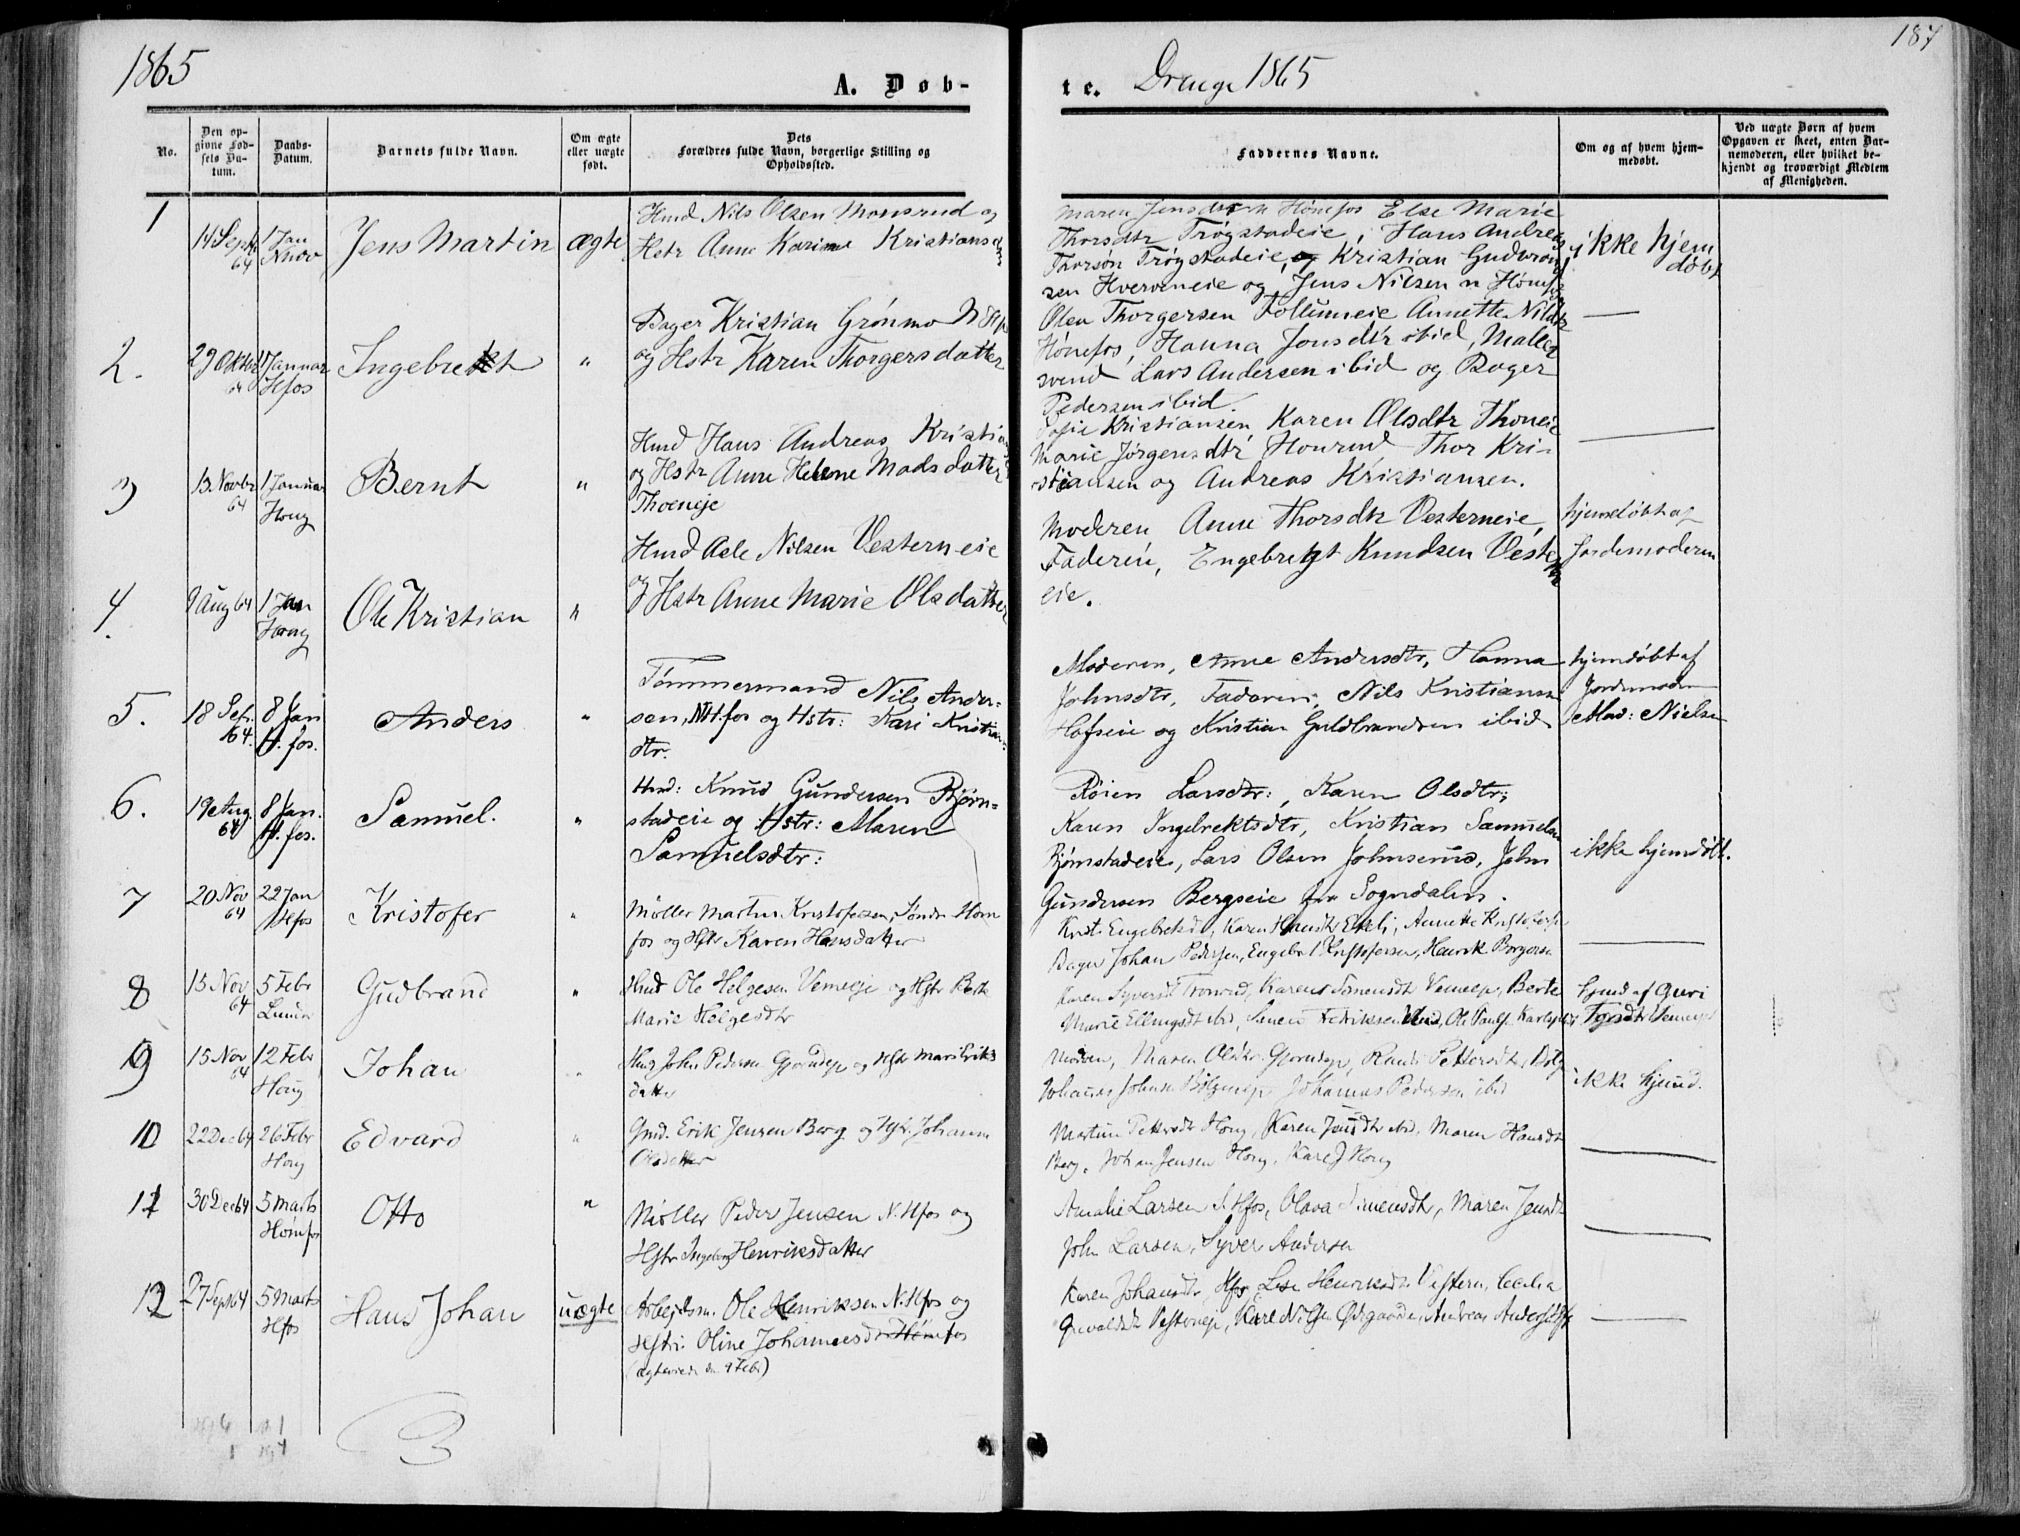 1865
A. Døb-
te. Drenge 1865
187
No.
Den op-
givne Fød-
sels Da-
tum.
Daabs-
Datum.
Barnets fulde Navn.
Om ægte
eller uægte
født.
Dets
Forældres fulde Navn, borgerlige Stilling og
Opholdssted.
Faddernes Navne.
Om og af hvem hjem-
medøbt.
Ved uægte Børn af hvem
Opgaven er skeet, enten Bar-
nemoderen, eller hvilket be-
kjendt og troværdigt Medlem
af Menigheden.
1
14 Septbr
64
1 Jan
Jens Martin
ægte
Hmd Nils Olsen Monsrud og
Hstr Anne Karine Kristiansen
Maren Jensdtr Hønefos Else Marie
Thorsdtr Trøgstadeie, Hans Andreas
Thorsøn Trøgstadeie, og Kristian
sen Hverveneie og Jens Nilsen n Hønefos
ikke hjem
døbt
2.
29 Oktbr
64
1 Januar
Hfos
Ingebrekt
"
Bager Kristian Grønmo N Hfos
og Hstr Karen Thorgersdatter
Olea Thorgersen Follumeie Annette Nilsdtr
Hønefos, Hanna Jonsdtr ibid, Møller
svend Lars Andersen ibid og Bager
Pedersen ibid.
—
3
13 Novbr
64
1 Januar
Houg
Bernt
"
Hmd Hans Andreas Kristiansen
og Hstr Anne Helene Madsdatter
Thoeneje
Kristiansen Karen Olsdtr Thoneie
Marie Jørgensdtr Honrud Thor Kri-
stiansen og Andreas Kristiansen.
—
4.
9 Aug 64
1 Jan
Houg
Ole Kristian
"
Hmd Asle Nilsen Vesterneie
og Hstr Anne Marie Olsdatter
Moderen, Anne Thorsdtr Vesterneie,
Faderen, Engebregt Knudsen Vestern
eie.
hjemdøbt af
Jordemoderen
5.
18 Sep.
64.
8 Jan
H.fos.
Anders
"
Tømmermand Nils Ander-
sen, N.H.fos og Hstr: Kari Kristian-
dtr.
Moderen, Anne Andersdtr, Hanna
Johnsdtr, Faderen, Nils Kristiansen
Hofseie og Kristian Guldbrandsen ibid
hjemdøbt af
Jordemoder
Mad: Nielsen
6.
19 Aug.
64
8 Jan.
H.fos.
Samuel.
"
Hmd: Knud Gundersen Bjørn-
stadeie og Hstr: Maren
Samuelsdtr:
Røien Larsdtr:, Karen Olsdtr;
Karen Ingebrektsdtr, Kristian Samuelsen
Bjørnstadeie, Lars Olsen Johnsrud, John
Gundersen Bergseie fra Sogndalen.
ikke hjemdøbt.
7
20 Nov
64
22 Jan
Hfos
Kristofer
"
Møller Martin Kristofersen, Søndr Høn
fos og Hstr Karen Hansdatter
Krist. Karen Hansdtr Annette
Bager Johan Pedersen, Engebret Kristofersen, Henrik Borgersen
—
8
15 Nov
64
5 Febr
Lunder
Gudbrand
"
Hmd Ole Helgesen Vemeeje og Hstr Berte
Marie Helgesdtr
Karen Syversdtr Tronrud, Karen Simensdtr Vemeeje, Berte
Marie Ellingsdtr ibid, Simen Fredriksen ibid, Ole Pauls.
hjemd af Guri
9
15 Nov
64
12 Febr
Houg
Johan
"
Hmd John Pedersen og Hstr Mari Eriks
datter
Moderen, Maren Olsdtr Randi Pettersdtr
Johannes Johnsen Johannes Pedersen ibid
ikke hjemd.
10
22 Dec 64
26 Febr
Houg
Edvard
"
Gmd. Erik Jensen Berg og Hstr. Johanne
Olsdatter
Martine Pettersdtr Houg, Karen Jensdtr ibid, Maren Hansdtr
Berg, Johan Jensen Houg, Kare J Houg
—
11
30 Dec 64
5 Marts
Hønefos
Otto
"
Møller Peder Jensen N. Hfos og
Hstr Ingeborg Henriksdatter
Amalie Larsen S. Hfos, Olava Simensdtr, Maren Jensdtr
John Larsen, Syver Andersen
—
12
27 Sept 64
5 Marts
Hfos
Hans Johan
uægte
Arbejdsm. Ole Henriksen N. Hfos og
Hstr: Oline Johannesdtr Hønefos
(ægteviede den 9 Febr)
Karen Johansdtr Hfos, Lise Henriksdtr Vestern,
Vesterneje, Karl Nilsen Andreas Anders. Hfos
—